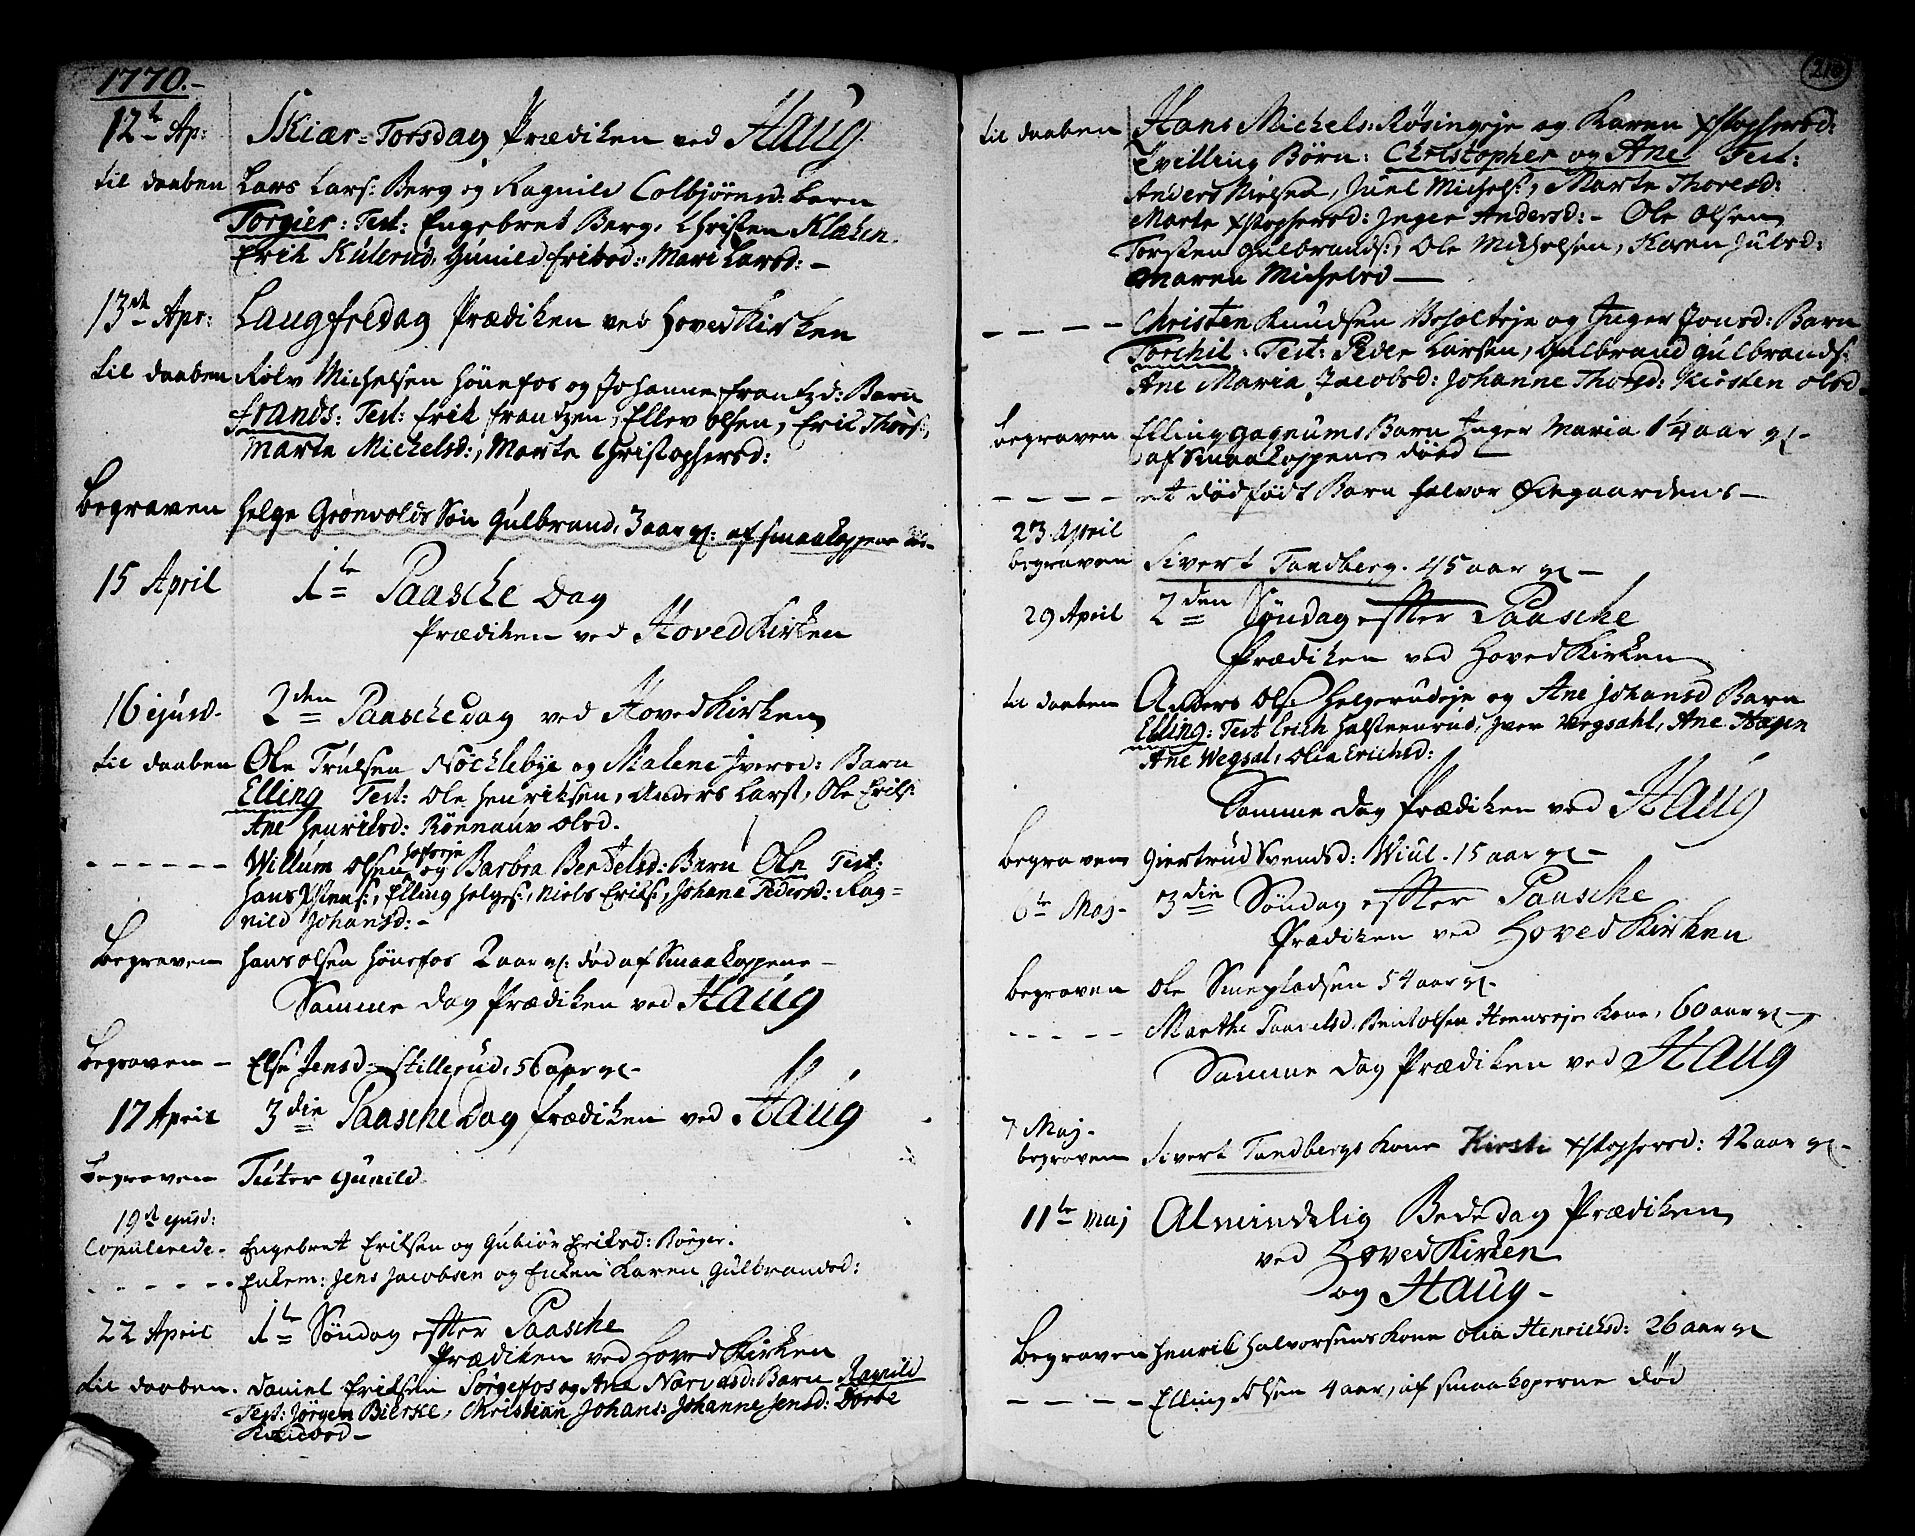 1770.-
12te Ap: Skiær-Torsdag Prædiken ved Haug
til daaben Lars Lars: Berg og Ragnild Colbjørnsd: barn
Torgier: Test: Engebret Berg, Christen Klækken
Erik Kulerud, Gunild Eriksd: Mari Larsd: -
13de Apr: Langfredag Prædiken ved Hoved Kirken
til daaben Rolv Michelsen Hønefos og Johanne Frantzd: Barn
Frands: Test: Erik Frantzen, Ellev Olsen, Erik Thors:,
Marte Michelsd:, Marte Christophersd:
Begraven Helge Grønvolds Søn Gulbrand, 3 aar gl: af smaakoppene
15 April 1te Paasche Dag
Prædiken ved Hoved Kirken
16 ejusd. 2den Paaschedag ved Hoved Kirken
til daaben Ole Trulsen Nøcklebye og Malene Iversd: Barn
Elling Test: Ole Henriksen, Anders Larss, Ole Eriks:
Ane Henriksd: Rønnauv Olsd.
- - - - - - Willum Olsen Hofseje og Barbra Bentelsd: Barn Ole Test:
Hans Stens:, Elling Helges:, Niels Eriks:, Johana Pedersd: Rag=
nild Johansd: -
Begraven Hans Olsen Hønefos 2 aar gl: død af Smaakoppene -
Samme dag Prædiken ved Haug
Begraven - Else Jensd: Stillerud, 56 aar gl -
17 April 3die Paasche Dag Prædiken ved Haug
Begraven Tuter Gunild
19de ejusd:
Copulerede - Engebret Eriksen og Gubiør Eriksd: Børger.
- - - - - - Enkem: Jens Jacobsen og Enken Karen Gulbrandsd:
22 April 1te Søndag effter Paasche
Prædiken ved Hoved Kirken
til daaben. Daniel Eriksen Sørgefos og Ane Narvesd: Barn Ragnild
Test: Jørgen Bierke, Christian Johans: Johanne Jensd: Dorte
Knudsd -
210
til daaben Hans Michels: Røsingeje og Karen Xstophersd:
Tvilling Børn: Christopher og Ane Test:
Anders Nielsen, Juel Michels:, Marte Thoresd:
Marte Xstophersd: Inger Andersd: - Ole Olsen
Torsten Gulbrands:, Ole Michelsen, Karen Julsd:
Maren Michelsd -
- - - - Christen Knudsen Vesolteje og Inger Jonsd: Barn
Torchil. Test: Peder Larsen, Gulbrand Gulbrands:
Ane Maria Jacobsd: Johanne Thorsd: Kirsten Olsd -
begraven Elling Gagnums Barn Inger Maria 1 1/4 aar gl -
af Smaakoppene død -
- - - - et dødfødt Barn Halvor Øregaardens -
23 April
begraven Sivert Tandberg. 45 aar gl -
29 April 2den Søndag effter Paasche
Prædiken ved Hoved Kirken
til daaben Anders Ols: Helgerudeje og Ane Johansd Barn
Elling: Test Erich Halsteenrud, Iver Vegsahl, Ane Hagen
Ane Wegsal, Olia Erichsd:
Samme dag Prædiken ved Haug
begraven Giertrud Svendsd: Wiul. 15 aar gl -
6te Maj - 3die Søndag effter Paasche
Prædiken ved Hoved Kirken
begraven Ole Smepladsen 54 aar gl -
- - - - - Marthe Paavelsd. Bent Olsen Heenseje Kone, 60 aar gl -
Samme dag Prædiken ved Haug
7 Maj -
begraven Sivert Tandbergs Kone Kirsti Xstophersd: 42 aar gl -
11te Maj Almindelig Bededag Prædiken
ved Hoved Kirken
og Haug -
Begraven Henrik Halvorsens Kone Olia Henrichsd: 26 aar gl
- - - - Elling Olsen 4 aar, af smaakoperne død